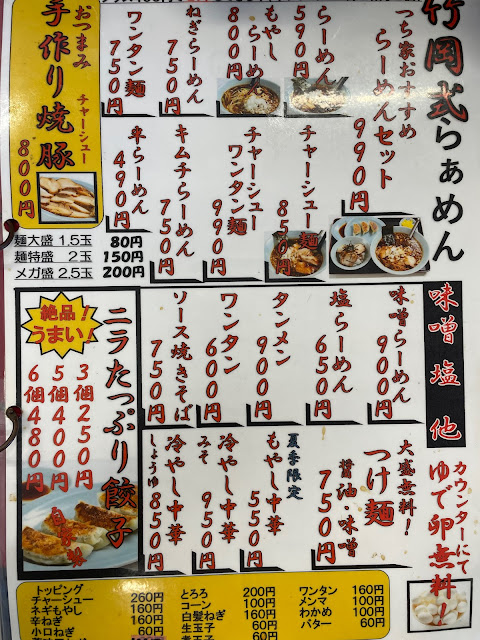 竹岡式らぁめん
つち家おすすめ
らーめんセット
990円
らーめん
590円
もやし
らーめん
800円
ねぎらーめん
750円
ワンタン麺
750円
チャーシュー麺
850円
チャーシュー
ワンタン麺
990円
キムチらーめん
750円
半らーめん
490円
おつまみ
チャーシュー
手作り焼豚
800円
麺大盛 1.5玉 80円
麺特盛 2玉 150円
メガ盛 2.5玉 200円
味噌 塩 他
味噌らーめん
900円
塩らーめん
650円
タンメン
900円
ワンタン
600円
ソース焼きそば
750円
カウンターにて
ゆで卵無料！
大盛無料！
つけ麺
醤油・味噌
750円
夏季限定
もやし中華
550円
冷やし中華
みそ
950円
冷やし中華
しょうゆ
850円
絶品！
うまい！
ニラたっぷり餃子
3個250円
5個400円
6個480円
自家製
トッピング
チャーシュー 260円
ネギもやし 160円
辛ねぎ 160円
小口ねぎ
とろろ 200円
コーン 100円
白髪ねぎ 160円
生玉子 60円
ワンタン 160円
メンマ 100円
わかめ 100円
バター 60円